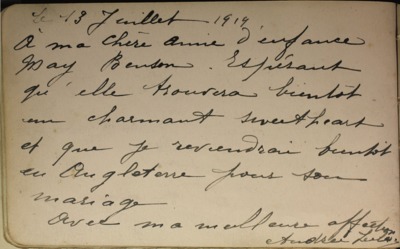 Le 13 Juillet 1919
À ma chère amie d'enfance
May Benson. Espérant
qu'elle trouvera bientôt
un charmant sweetheart
et que je reviendrai bientôt
en Angleterre pour son
mariage
Avec ma meilleure affection